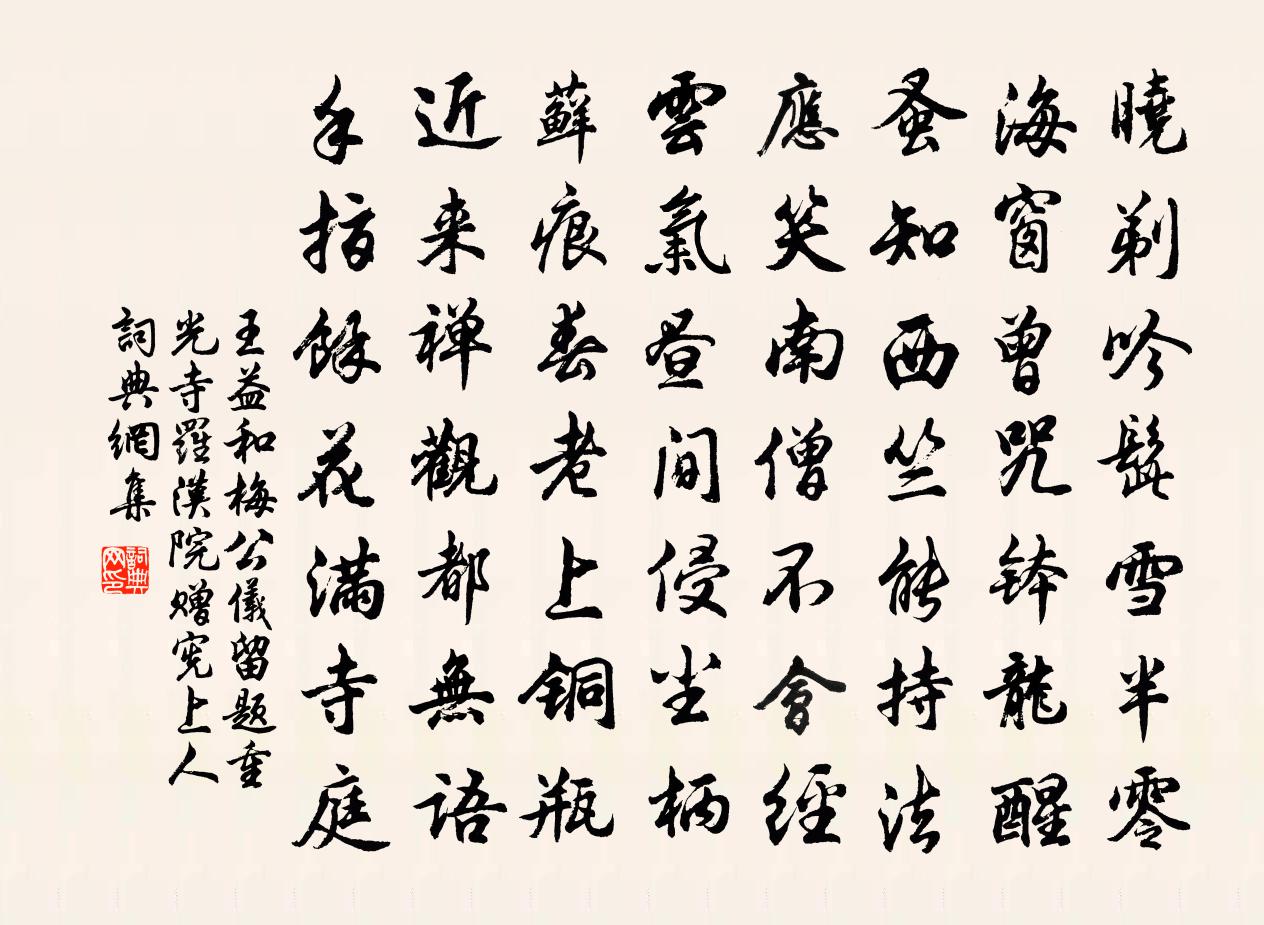 曉剃吟髭雪半零
海窗曾咒鉢龍醒
蚤知西竺能持法
應笑南僧不會經
雲氣晝間侵坐柄
蘚痕春老上銅瓶
近来禅觀都無語
手指餘花滿寺庭
王益和梅公儀留題重
光寺羅漢院贈寃上人
詞典網集
詞典网印